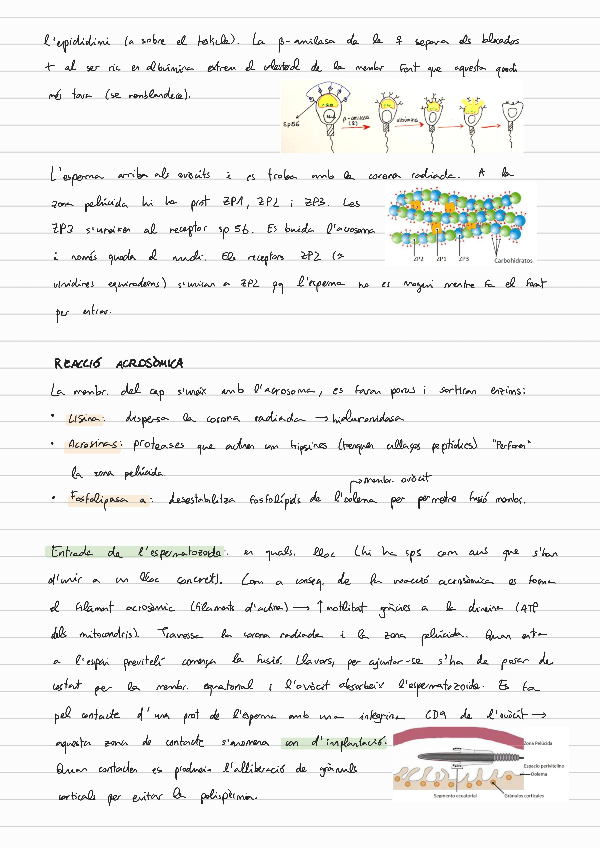 l'epidídimi (a sobre el testicle). La β-amilasa de la ♀ separa els blocadors
+ al ser ric en albúmina extreu el colesterol de la membr fent que aquesta quedi
més tova (se reblandece).
Sp56
β-amilasa
(♀)
albúmina
L'esperma arriba als ovòcits i es troba amb la corona radiada. A la
zona pelúcida hi ha prot ZP1, ZP2 i ZP3. Les
ZP3 s'uneixen al receptor sp 56. Es buida l'acrosoma
i només queda el nucli. Els receptors ZP2 (a
equinoderms) s'uniran a ZP2 pq l'esperma no es mogui mentre fa el forat
per entrar.
ZP2 ZP1 ZP3 Carbohidratos
REACCIÓ ACROSÒMICA
La membr. del cap s'uneix amb l'acrosoma, es faran porus i sortiran enzims:
• Lisina: dispersa la corona radiada → hialuronidasa
• Acrosinas: proteases que actuen com tripsines (trenquen enllaços peptídics) "Perforen"
la zona pelúcida.
→ membr. ovòcit
• Fosfolipasa a: desestabilitza fosfolípids de l'oolema per permetre fusió membr.
Entrada de l'espermatozoide: en quals. lloc (hi ha sps com aus que s'han
d'unir a un lloc concret). Com a conseq. de la reacció acrosòmica es forma
el filament acrosòmic (filaments d'actina) → ↑motilitat gràcies a la dineïna (ATP
dels mitocondris). Travessa la corona radiada i la zona pelúcida. Quan entra
a l'espai previtel·lí comença la fusió. Llavors, per ajuntar-se s'ha de posar de
costat per la membr. equatorial i l'ovòcit absorbeix l'espermatozoide. Es fa
pel contacte d'una prot de l'esperma amb una integrina CD9 de l'ovòcit →
aquesta zona de contacte s'anomena con d'implantació.
Quan contacten es produeix l'alliberació de grànuls
corticals per evitar la polispèrmia.
Zona Pelúcida
Espacio perivitelino
Oolema
Segmento ecuatorial
Gránulos corticales